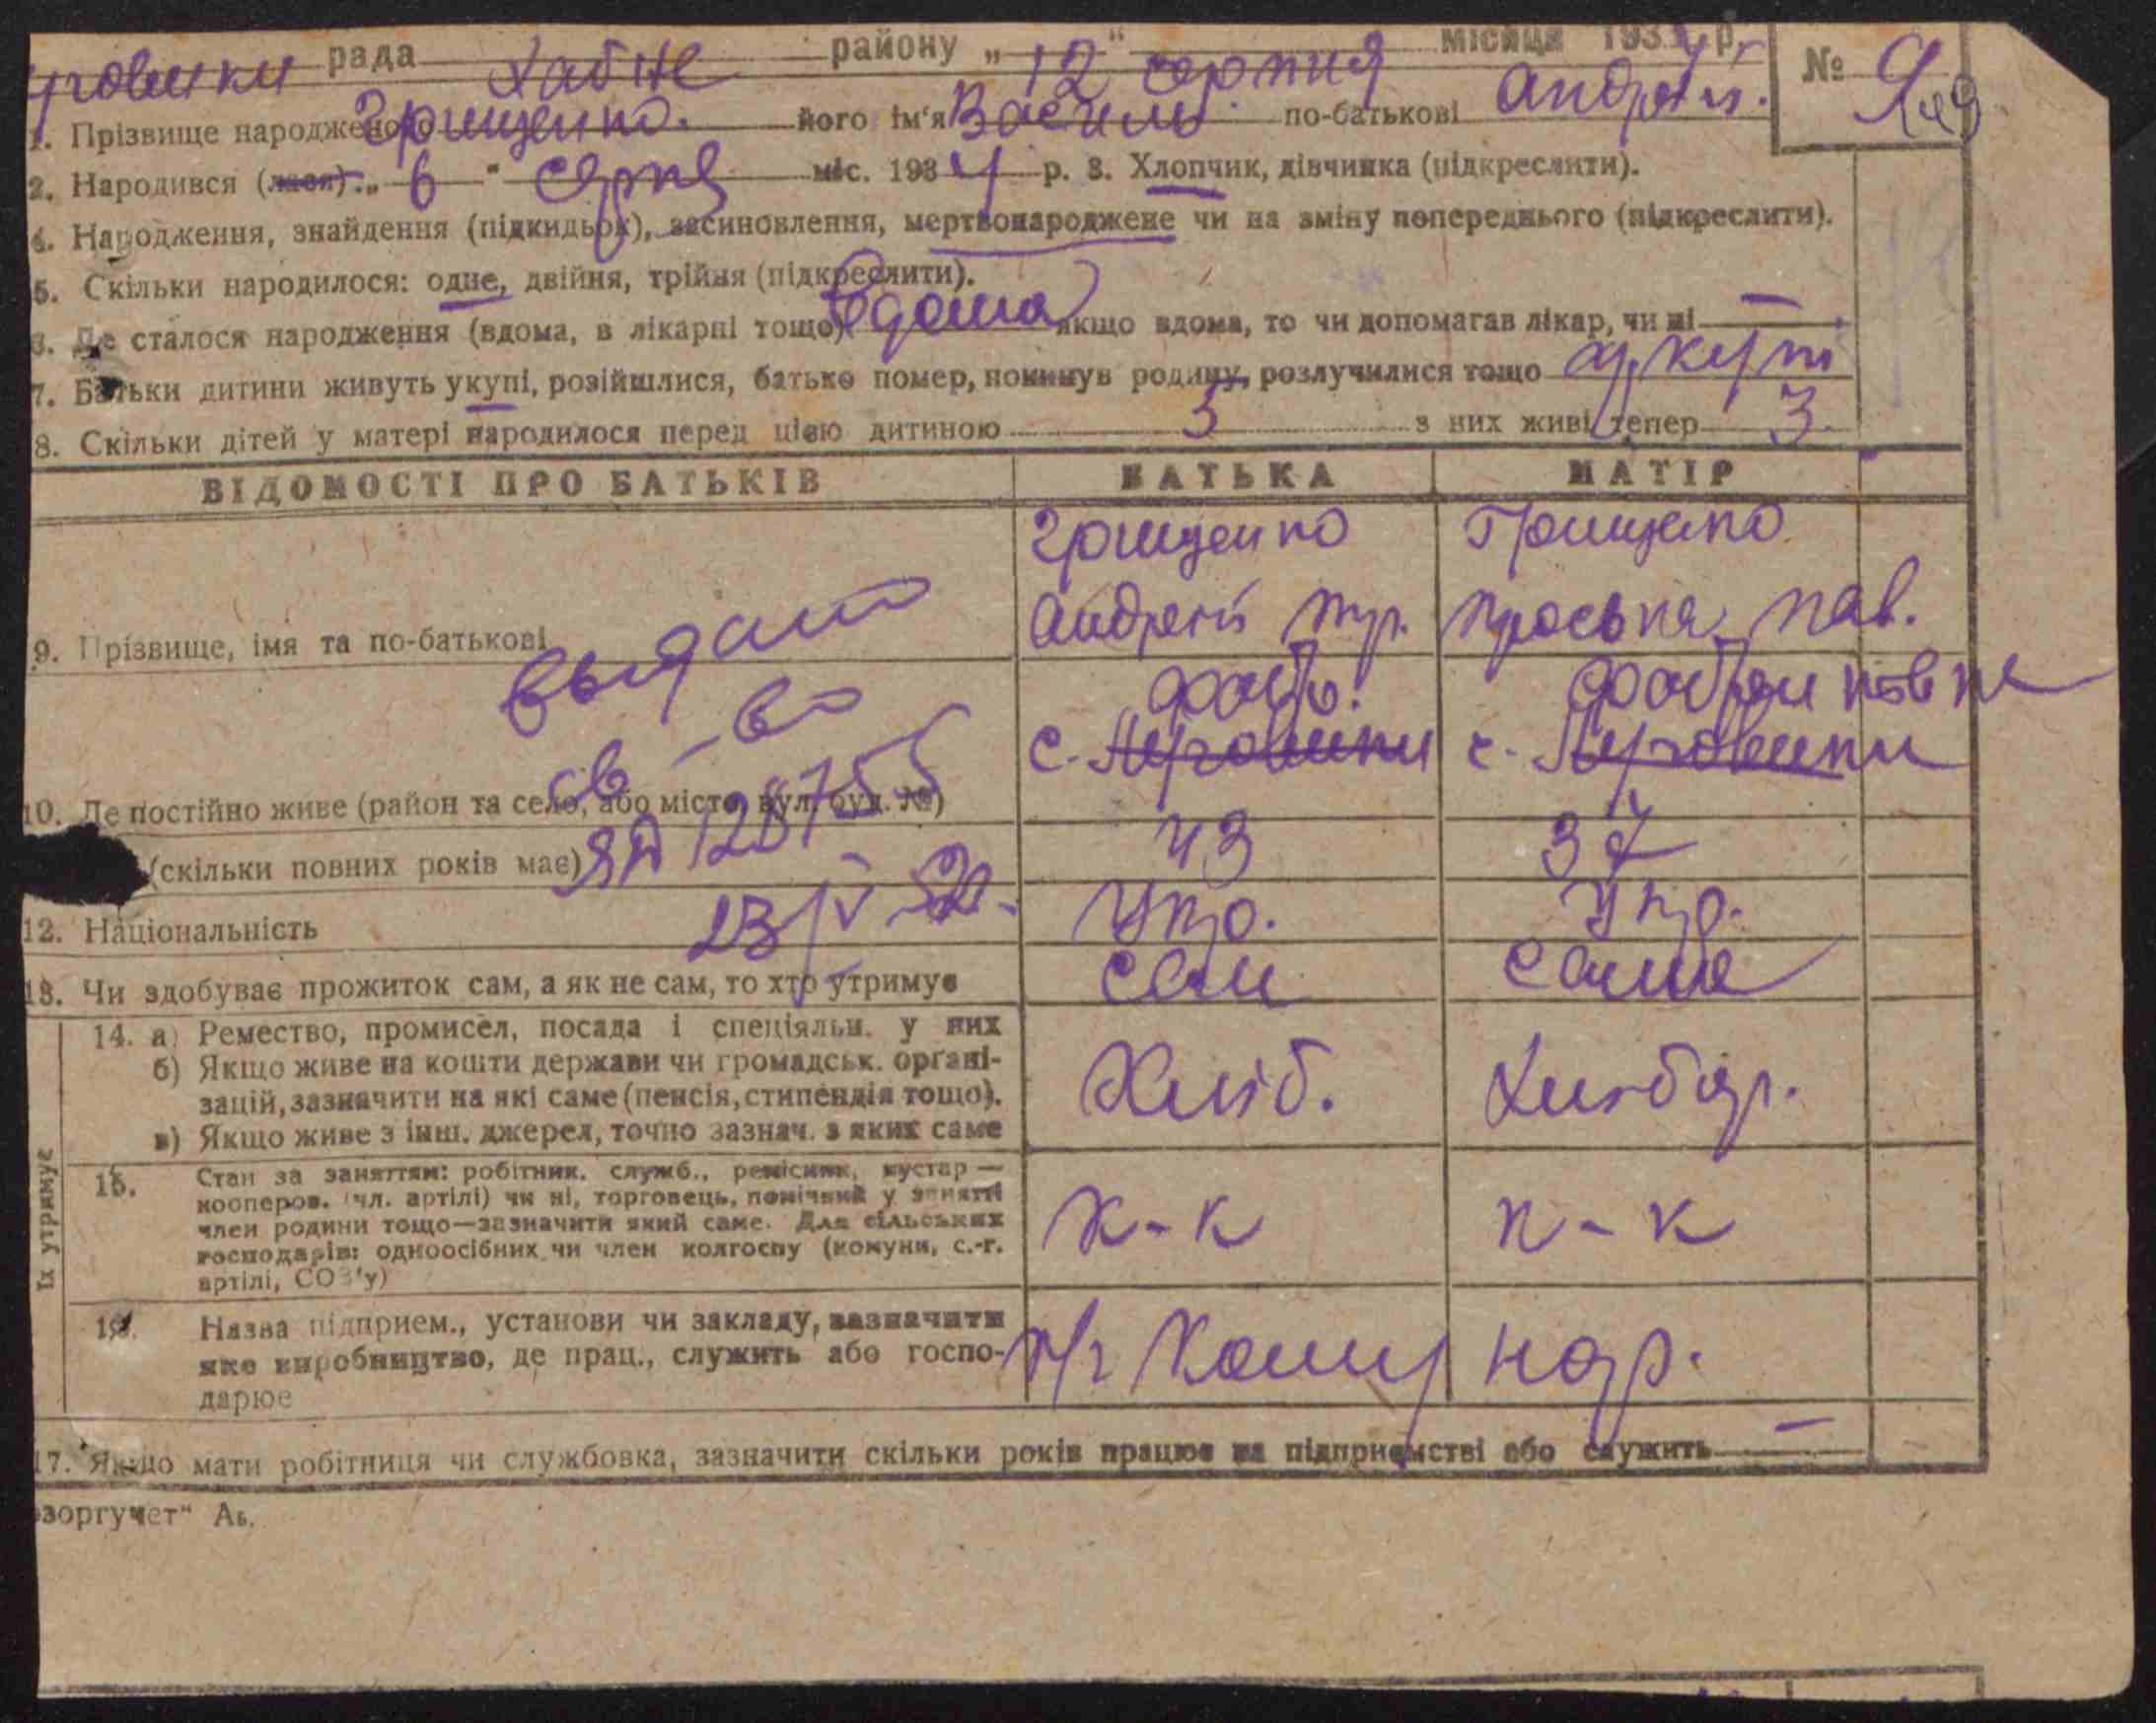 рада Хабне району „ 12 " серпня місяця 1934 р. №
1. Прізвище народженого Грищенко. його ім'я Василь по-батькові Андрієв.
2. Народився (лася) „ 6 " Серпня міс. 1934 р. 3. Хлопчик, дівчинка (підкреслити).
4. Народження, знайдення (підкидьок), засиновлення, мертвонароджене чи на зміну попереднього (підкреслити).
5. Скільки народилося: одне, двійня, трійня (підкреслити).
6. Де сталося народження (вдома, в лікарні тощо) Вдома якщо вдома, то чи допомагав лікар, чи ні —
7. Батьки дитини живуть укупі, розійшлися, батько помер, покинув родину, розлучилися тощо
8. Скільки дітей у матері народилося перед цією дитиною 3 з них живі тепер 3.
ВІДОМОСТІ ПРО БАТЬКІВ БАТЬКА МАТІР
Грищенко Грищенко
9. Прізвище, імя та по-батькові Андрей Проська Пав.
выдано
св-во
10. Де постійно живе (район та село, або місто, вул. буд. №)
с. с.
(скільки повних років має) 43 37
ЯА 128755
23/IV 52.
12. Національність Укр. Укр.
13. Чи здобуває прожиток сам, а як не сам, то хто утримує сам сама
Їх утримує
14. а) Ремество, промисел, посада і спеціяльн. у них
б) Якщо живе на кошти держави чи громадськ. органі-
зацій, зазначити на які саме (пенсія, стипендія тощо).
в) Якщо живе з інш. джерел, точно зазнач. з яких саме
Хліб. Хлібор.
15. Стан за заняттям: робітник, служб., ремісник, кустар —
кооперов. (чл. артілі) чи ні, торговець, помічний у занятті
член родини тощо—зазначити який саме. Для сільських
господарів: одноосібник чи член колгоспу (комуни, с.-г.
артілі, СОЗ'у)
к-к к-к
16. Назва підприєм., установи чи закладу, зазначити
яке виробництво, де прац., служить або госпо-
дарює
к/г
17. Якщо мати робітниця чи службовка, зазначити скільки років працює на підприємстві або служить —
зоргучет"